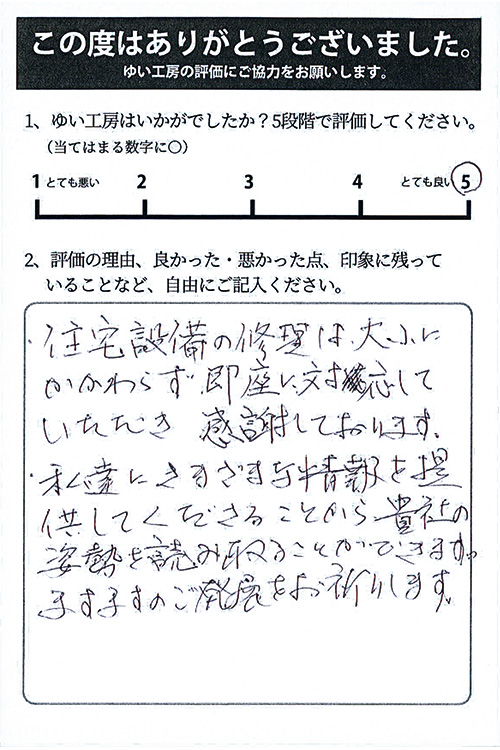 この度はありがとうございました。
ゆい工房の評価にご協力をお願いします。
1、ゆい工房はいかがでしたか？5段階で評価してください。
（当てはまる数字に○）
1 とても悪い 2 3 4 とても良い 5
2、評価の理由、良かった・悪かった点、印象に残って
いることなど、自由にご記入ください。
・住宅設備の修理は、大小に
かかわらず即座に対応して
いただき 感謝しております。
・私達にさまざまな情報を提
供してくださることから貴社の
姿勢を読み取ることができます。
ますますのご発展をお祈りします。